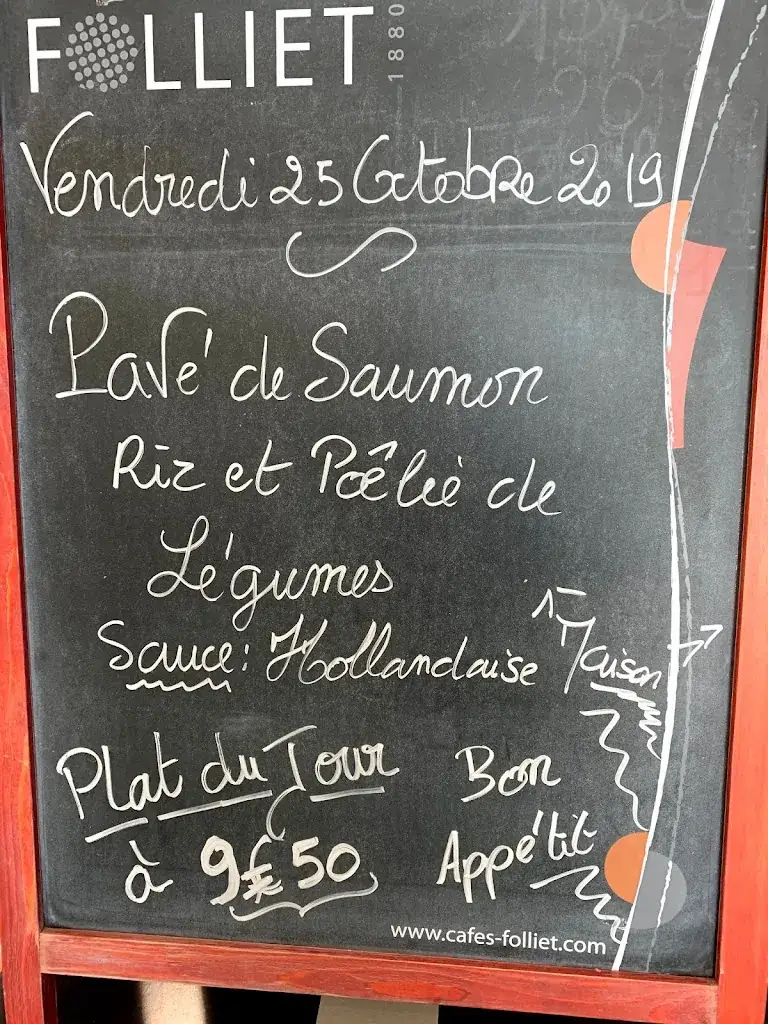 FOLLIET 1880
Vendredi 25 Octobre 2019
Pavé de Saumon
Riz et Poêlé de
Légumes
Sauce: Hollandaise Maison
Plat du Jour
à 9€50
Bon
Appétit
www.cafes-folliet.com